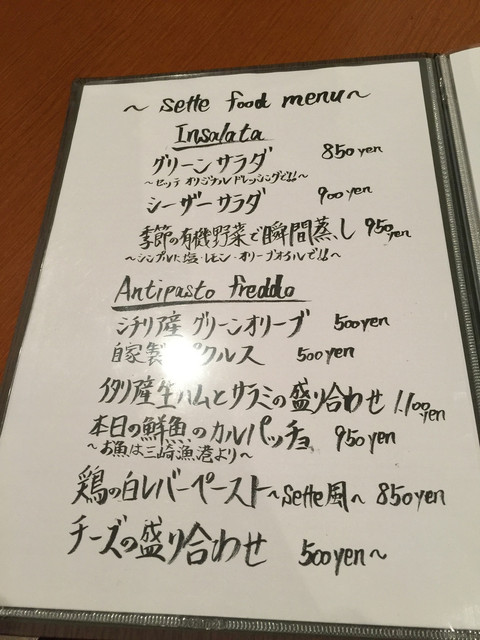 ~ Sette food menu ~
Insalata
グリーンサラダ 850yen
~セッテ オリジナル ドレッシングで!!~
シーザーサラダ 900yen
季節の有機野菜で瞬間蒸し 950yen
~シンプルに塩・レモン・オリーブオイルで!!~
Antipasto freddo
シチリア産 グリーンオリーブ 500yen
自家製 クルス 500yen
イタリア産生ハムとサラミの盛り合わせ 1,100yen
本日の鮮魚のカルパッチョ 950yen
~お魚は三崎漁港より~
鶏の白レバーペースト~Sette風~ 850yen
チーズの盛り合わせ 500yen~